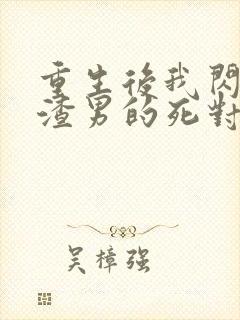 重生後我閃
渣男的死對
吴樟强